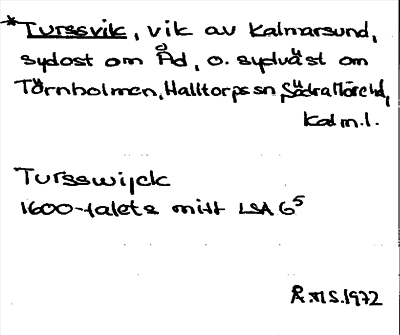 *Turssvik, vik av Kalmarsund,
sydost om Åd, o. sydväst om
Törnholmen, Halltorps sn, Södra Möre hd,
Kalm.l.
Tursswijck
1600-talets mitt LSA G⁵
R.M S.1972